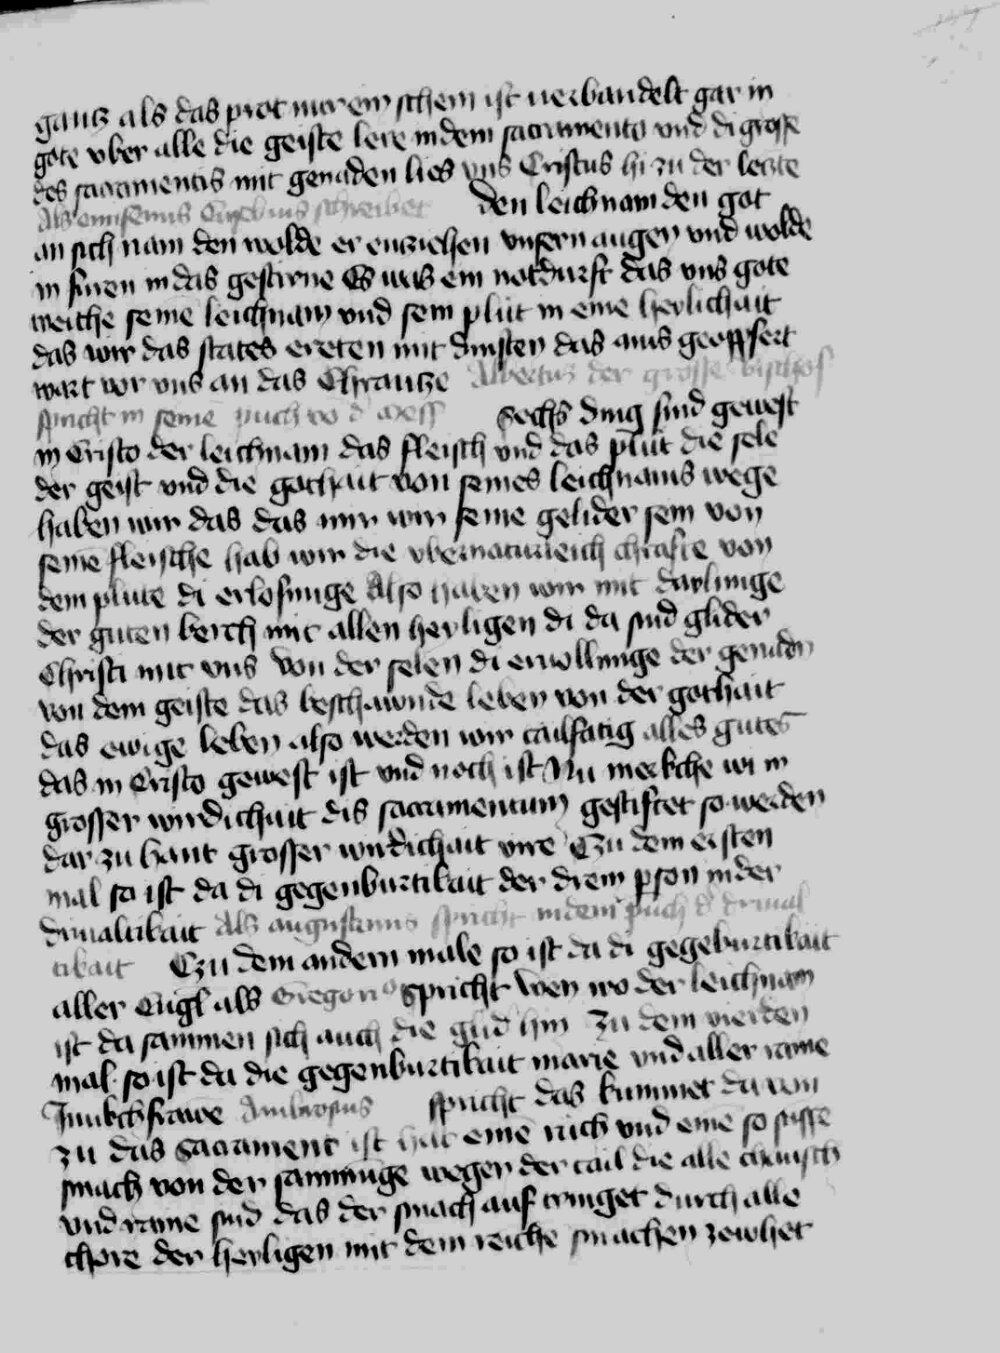 gantz als das prot nur eyn schein ist uerbandelt gar in
gote vber alle die geiste lere in dem sacramento vnd di grosse
des sacramentis mit genaden lies vns Cristus hi zu der leczte
Als emisenus Eusebius schreibet den leichnam den got
an sich nam den wolde er enziehen vnsern augen vnd wolde
in furen in das gestirne Es was ein notdurft das vns gote
weiche seine leichnam vnd sein plut in eine heylichait
das wir das states ereten mit dinsten das ains geopffert
wart vor vns an das Chrautze Albertus der grosse bischof
spricht in seine puch vo d mess Sechs ding sind gewest
in Cristo der leichnam das fleisch vnd das plut die sele
der geist vnd die gothait von seines leichnams wege
haben wir das das mir wir seine gelider sein von
seine fleische hab wir die vbernaturleich chrafte von
dem plute di erlosunge Also haben wir mit daylunge
der guten berch mit allen heyligen di da sind glider
Christi mit vns Von der selen di eruollunge der genadn
von dem geiste das beschawnde leben von der gothait
das ewige leben also werden wir tailfatig alles gutes
das in Cristo gewest ist vnd noch ist Nu merkche wi in
grosser wirdichait dis sacramentum gestiftet so werden
dar zu hant grosser wirdichait vire Czu dem ersten
mal so ist da di gegenburtikait der drein pson in der
driualtikait Als augustinus spricht in dem puch d' driual
tikait Czu dem andern male so ist da di gegeburtikait
aller Engl als Gregorio spricht wen wo der leichnam
ist da sammen sich auch die glid hin Zu dem vierden
mal so ist da die gegenburtikait marie vnd aller raine
Junkchfrawe Ambrosius spricht das kummet da von
zu das Sacrament ist hat eine rich vnd eine so susse
smach von der samnunge wegen der tail die alle chewsch
vnd raine sind das der smach auf tringet durch alle
chore der heyligen mit dem reiche smachen zewhet